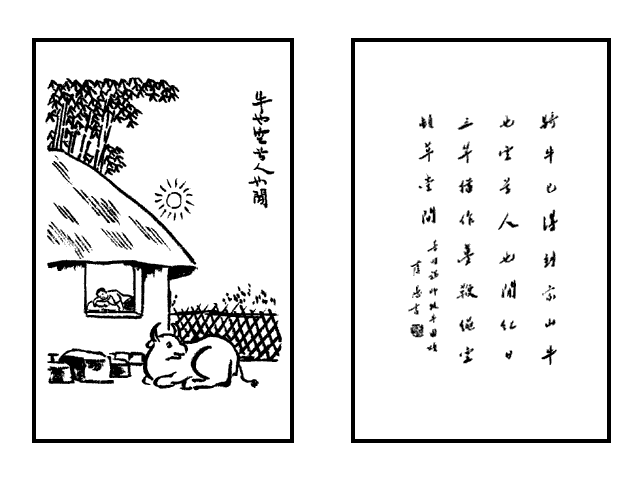 牛也空兮人也閒
騎牛已得到家山牛
也空兮人也閒紅日
三竿猶作夢鞭繩空
頓草堂間